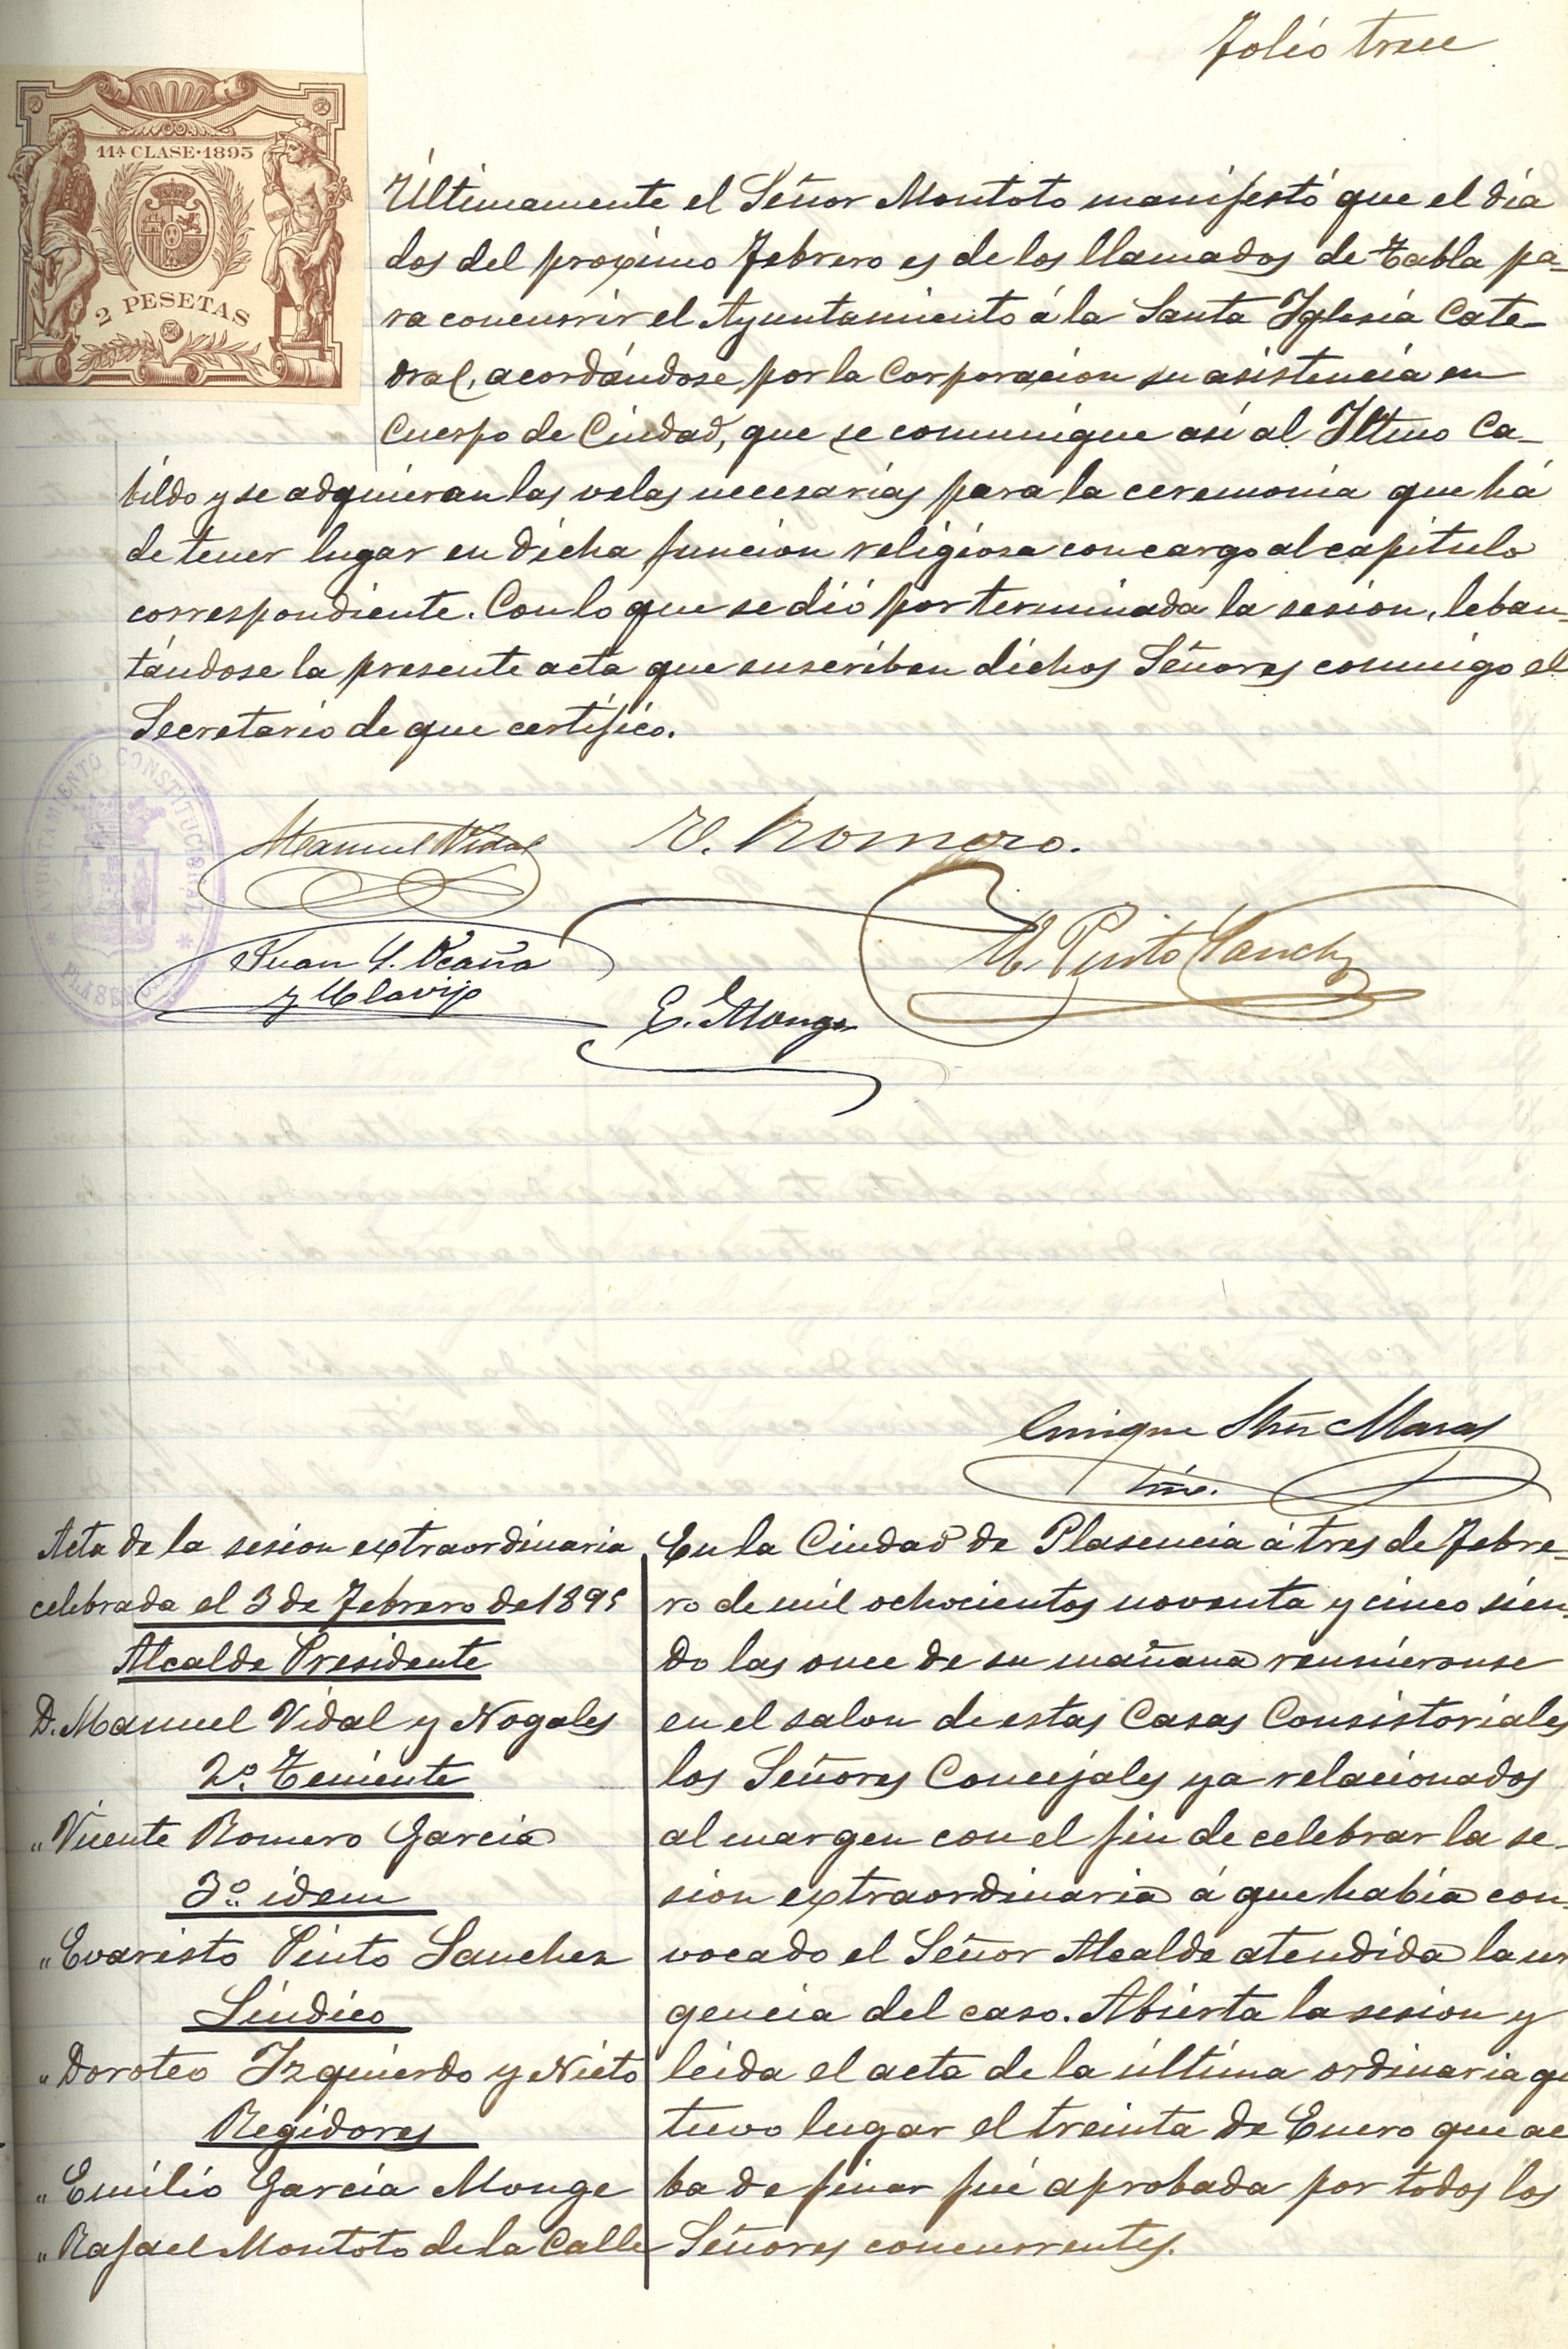 Folio trece
11ª CLASE·1895
2 PESETAS
Últimamente el Señor Montoto manifestó que el dia
dos del proximo Febrero es de los llamados de tabla pa-
ra concurrir el Ayuntamiento á la Santa Iglesia Cate-
dral, acordándose por la Corporacion su asistencia en
Cuerpo de Ciudad, que se comunique asi al Iltmo Ca-
bildo y se adquieran las velas necesarias para la ceremonia que há
de tener lugar en dicha funcion religiosa con cargo al capitulo
correspondiente. Con lo que se dió por terminada la sesion, leban-
tándose la presente acta que suscriben dichos Señores conmigo el
Secretario de que certifico.
AYUNTAMIENTO CONSTITUCIONAL
* PLASENCIA *
Manuel Vidal
V. Romero.
Juan Y. Ocaña
y Clavijo
E. Pinto Sanchz
E. G. Monge
Enrique Mars
Srio.
Acta de la sesion extraordinaria
celebrada el 3 de Febrero de 1895
Alcalde Presidente
D. Manuel Vidal y Nogales
2º Teniente
" Vicente Romero Garcia
3º idem
" Evaristo Pinto Sanchez
Sindico
" Doroteo Izquierdo y Nieto
Regidores
" Emilio Garcia Monge
" Rafael Montoto de la Calle
En la Ciudad de Plasencia á tres de Febre-
ro de mil ochocientos noventa y cinco sien-
do las once de su mañana reuniéronse
en el salon de estas Casas Consistoriales
los Señores Concejales ya relacionados
al margen con el fin de celebrar la se-
sion extraordinaria á que habia con-
vocado el Señor Alcalde atendida la ur
gencia del caso. Abierta la sesion y
leida el acta de la última ordinaria qu
tuvo lugar el treinta de Enero que ac
ba de finar fué aprobada por todos los
Señores concurrentes.